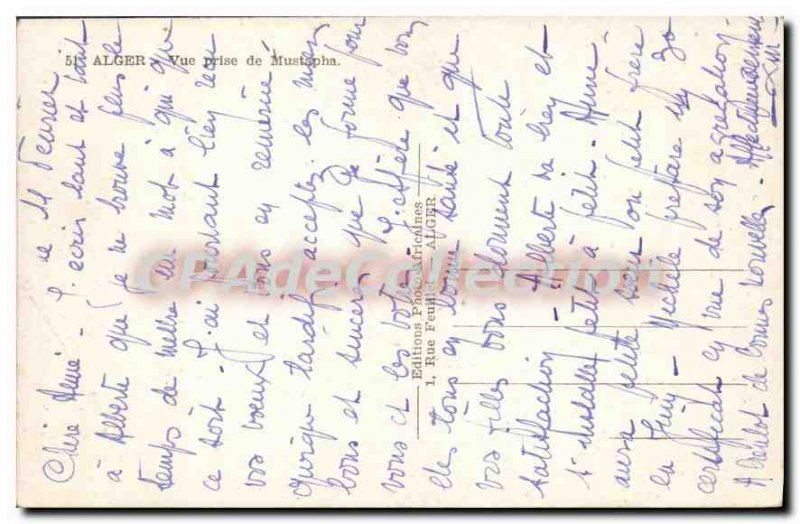 51. ALGER - Vue prise de Mustapha.
Editions Photo-Africaines
1, Rue Feuillet - ALGER
CPADeCollection
Chère Amie - le 11 Février
J'écris tant et tant
à Alberte que je ne trouve plus le
temps de mettre un mot à qui que
ce soit - J'ai pourtant bien reçu
vos voeux et vous en remercie
quoique tardifs acceptez les miens
bons et sincères que je forme pour
vous et les vôtres - J'espère que vous
êtes tous en bonne santé et que
vos filles vous donnent toute
satisfaction - Alberte va bien et
s'installe petit à petit - Anne
aura petite soeur ou petit frère
en Juin - Michèle prépare ses 20
certificats en vue de son agrégation -
A bientôt de bonnes nouvelles - Affectueusement